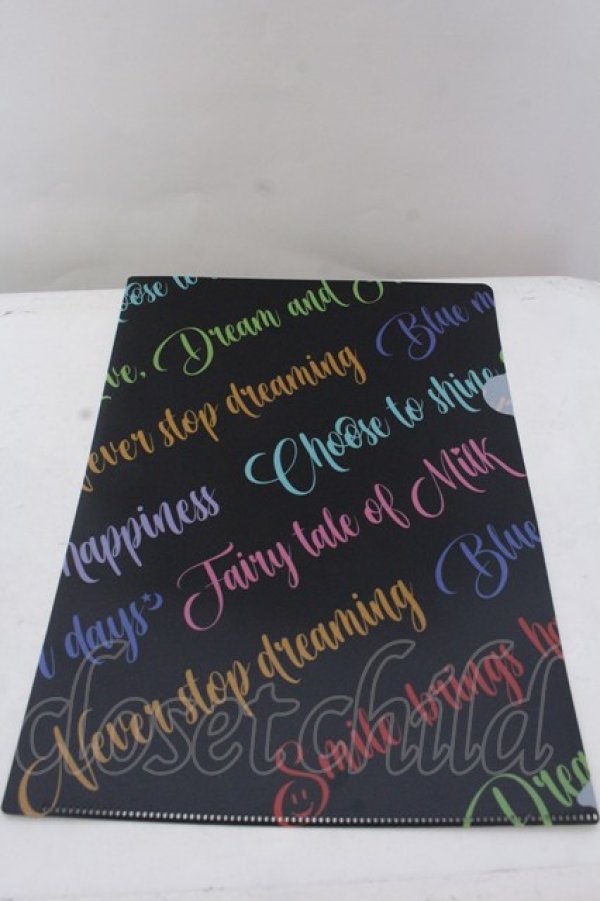 Dream and
Never stop dreaming
Blue
Choose to shine
happiness
Fairy tale of Milk
days
Blue
Never stop dreaming
Smile brings
Dream
closetchild